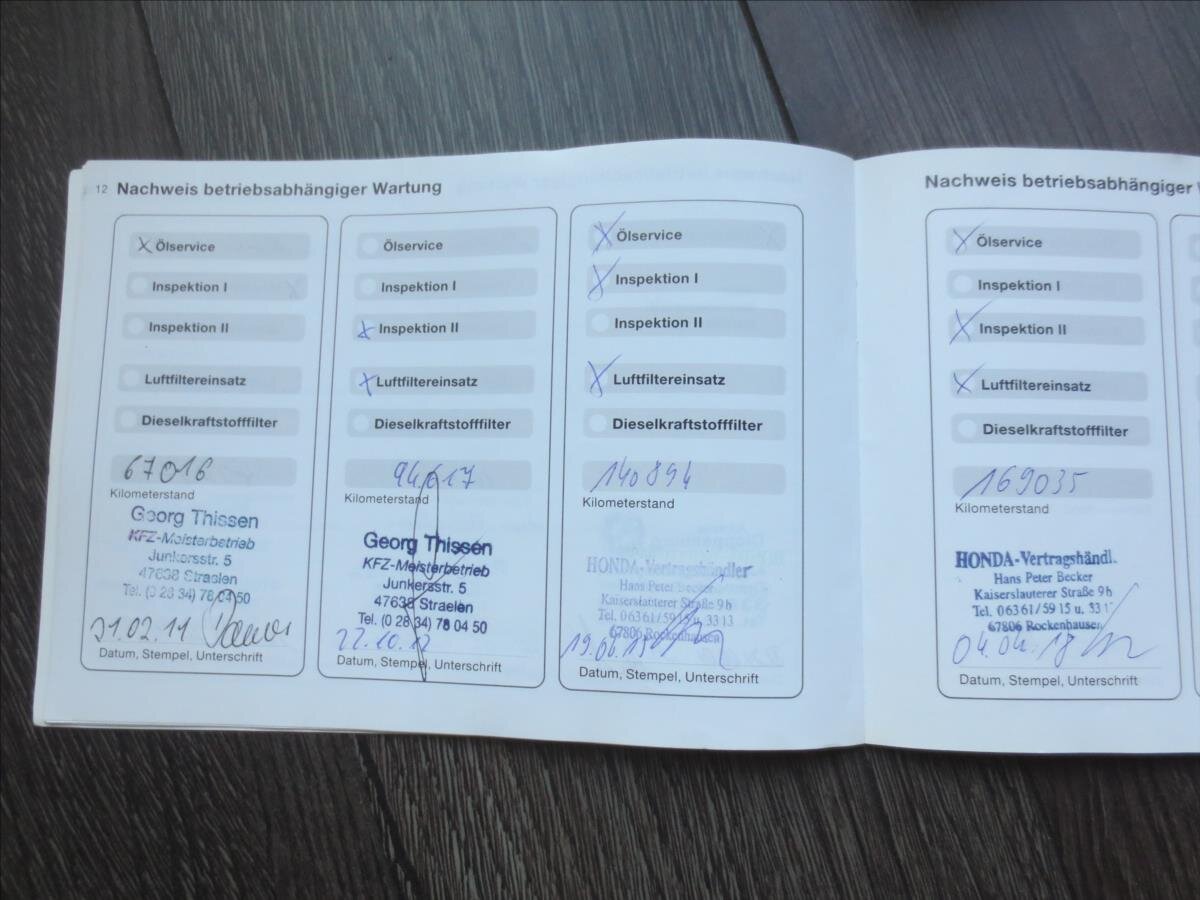 12 Nachweis betriebsabhängiger Wartung
X Ölservice
Inspektion I
Inspektion II
Luftfiltereinsatz
Dieselkraftstofffilter
67016
Kilometerstand
Georg Thissen
KFZ-Meisterbetrieb
Junkersstr. 5
47638 Straelen
Tel. (0 28 34) 78 04 50
Datum, Stempel, Unterschrift
Ölservice
Inspektion I
X Inspektion II
X Luftfiltereinsatz
Dieselkraftstofffilter
94617
Kilometerstand
Georg Thissen
KFZ-Meisterbetrieb
Junkersstr. 5
47638 Straelen
Tel. (0 28 34) 78 04 50
22.10.12
Datum, Stempel, Unterschrift
X Ölservice
X Inspektion I
Inspektion II
X Luftfiltereinsatz
Dieselkraftstofffilter
140894
Kilometerstand
HONDA-Vertragshändler
Hans Peter Becker
Kaiserslauterer Straße 9b
Tel. 06361/5915 u. 3313
67806 Rockenhausen
19.06.15
Datum, Stempel, Unterschrift
Nachweis betriebsabhängiger
X Ölservice
Inspektion I
X Inspektion II
X Luftfiltereinsatz
Dieselkraftstofffilter
169035
Kilometerstand
HONDA-Vertragshändl.
Hans Peter Becker
Kaiserslauterer Straße 9b
Tel. 06361/5915 u. 331
67806 Rockenhausen
04.04.18
Datum, Stempel, Unterschrift